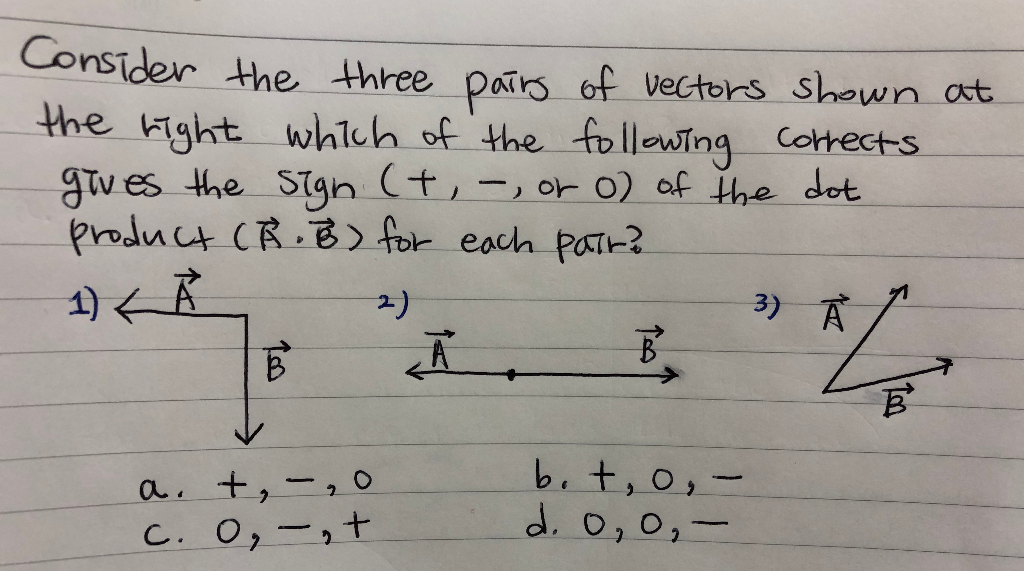 Consider the three pairs of vectors shown at
the right which of the following corrects
gives the sign (+, −, or 0) of the dot
product (A⃗ . B⃗) for each pair?
1) A⃗ 2) 3) A⃗
A⃗ B⃗
B⃗
B⃗
a. +, −, 0 b. +, 0, −
c. 0, −, + d. 0, 0, −